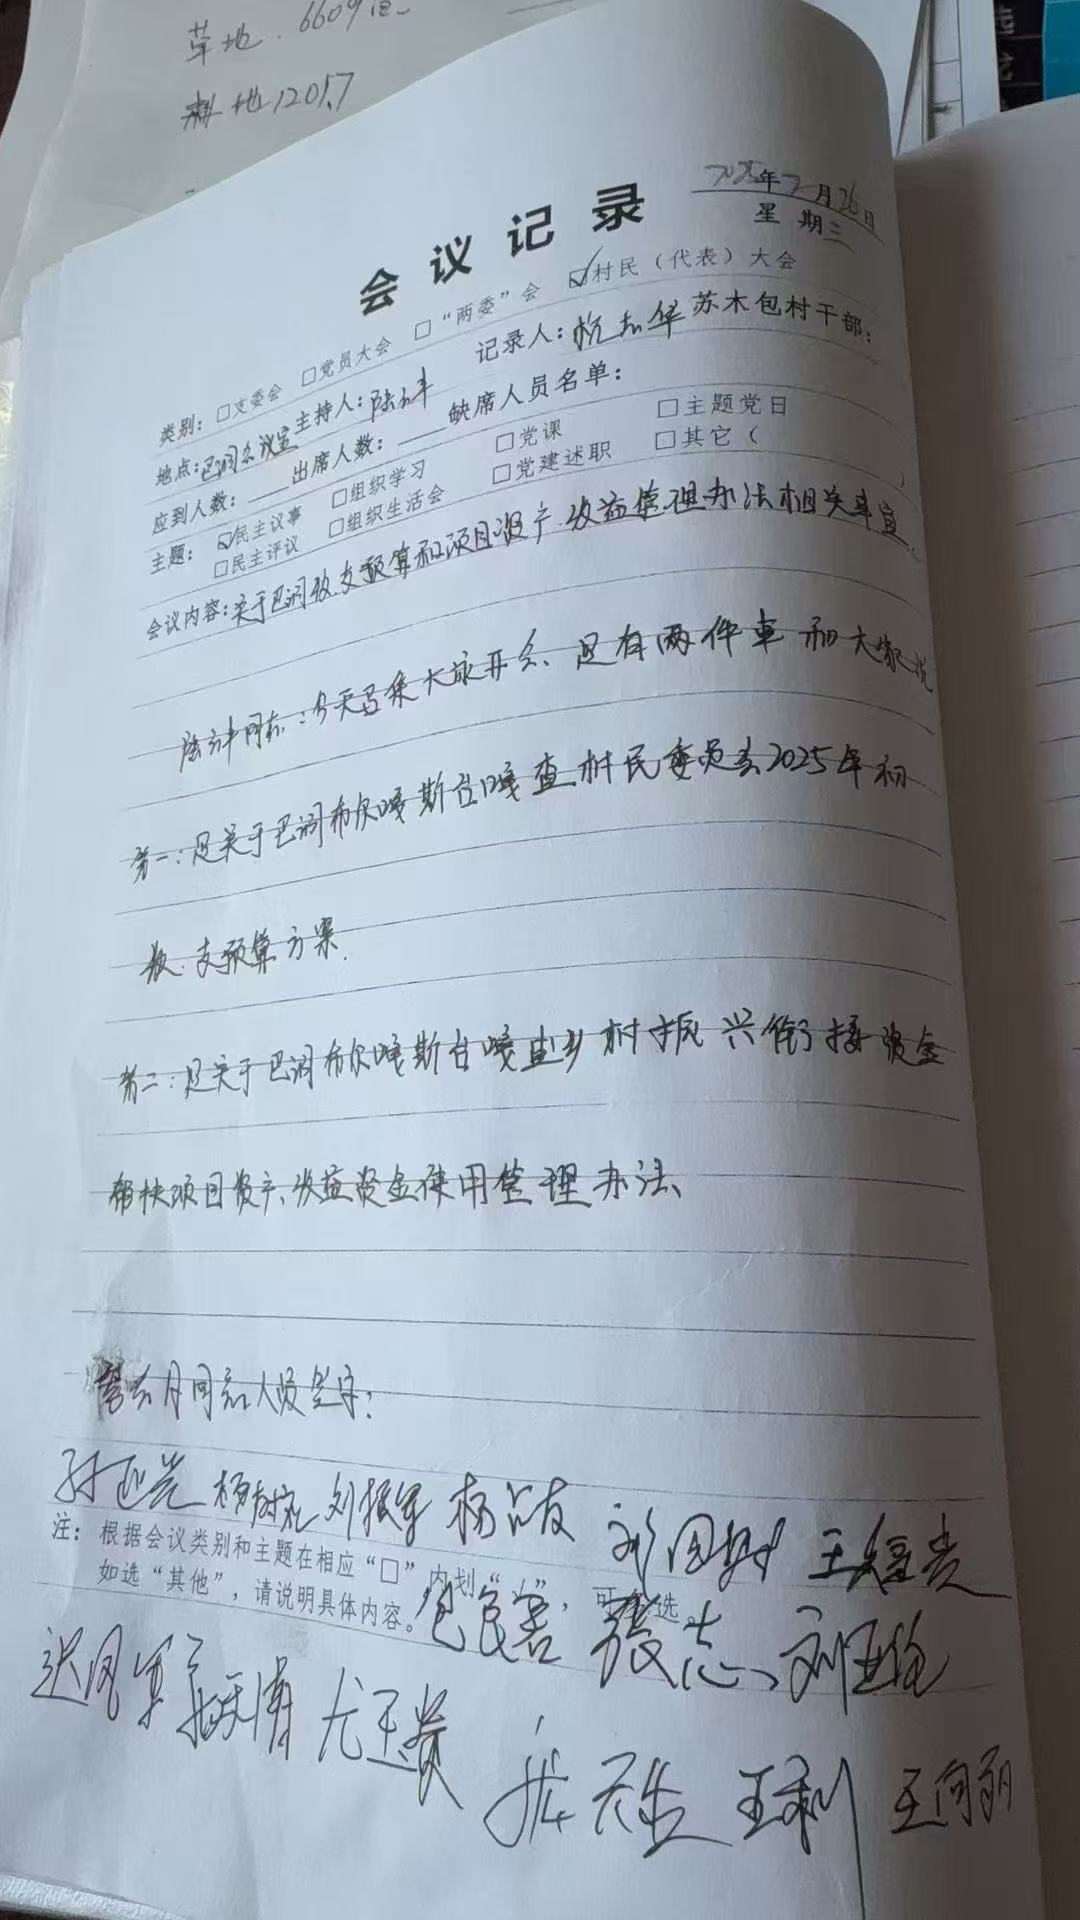 草地. 6609
耕地 1201.7
会议记录
2025年2月26日
星期三
类别: □支委会 □党员大会 □“两委”会 ☑村民（代表）大会
地点: 巴润会议室 主持人: 陆 记录人: 杭志华 苏木包村干部:
应到人数: ____ 出席人数: ____ 缺席人员名单:
主题: ☑民主议事 □组织学习 □党课 □主题党日
□民主评议 □组织生活会 □党建述职 □其它（ ）
会议内容: 关于巴润收支预算和项目资产、收益管理办法相关事宜.
陆 同志: 今天召集大家开会、是有两件事和大家说
第一: 是关于巴润布尔嘎斯台嘎查村民委员会2025年初
收、支预算方案.
第二: 是关于巴润布尔嘎斯台嘎查乡村振兴衔接资金
帮扶项目资产、收益资金使用管理办法、
同意人员签字:
刘振军 杨
注: 根据会议类别和主题在相应“□”内划“”, 可 选。
如选“其他”, 请说明具体内容。
张志、
尤玉贵
王利 王向丽